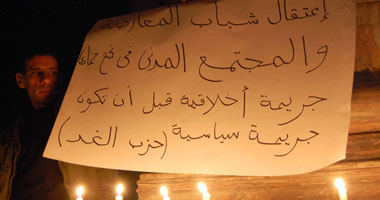 إعتقال شباب المعارضة
والمجتمع المدنى فى نجع حمادى
جريمة أخلاقية قبل أن تكون
جريمة سياسية (حزب الغد)